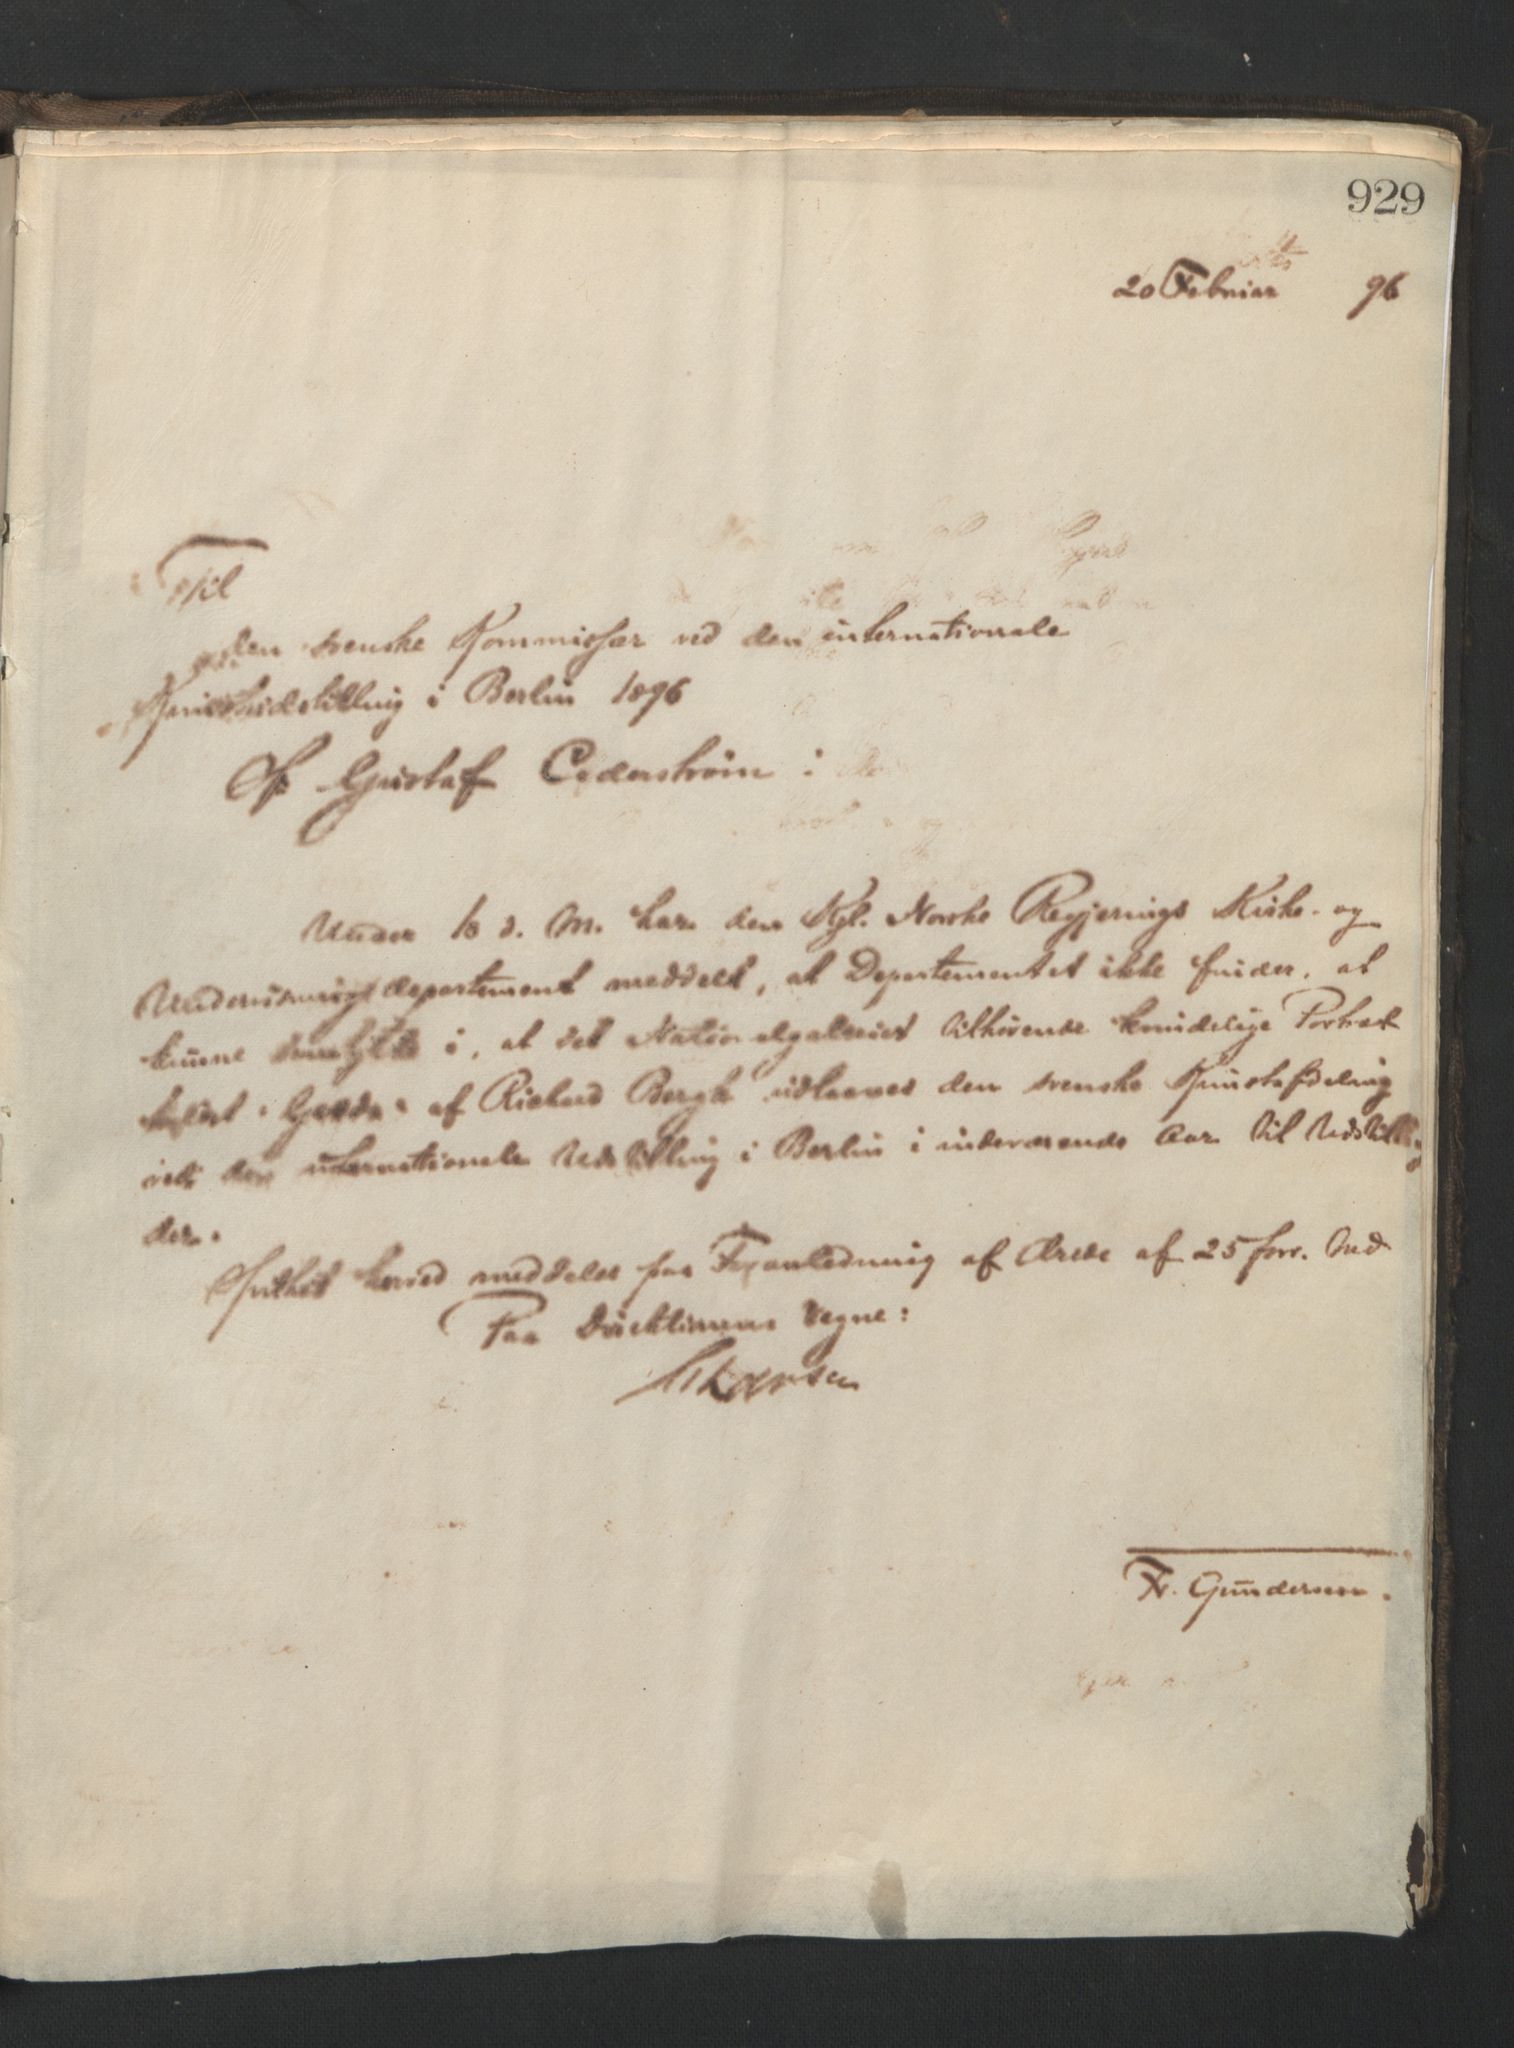 929
20 Februar 96
Til
den svenske Kommissær ved den internationale
Kunstudstilling i Berlin 1896
Hr Gustaf Cederström i
Under 18 d. M. har den Kgl. Norske Regjerings Kirke- og
Undervisningsdepartement meddelt, at Departementet ikke finder at
kunne samtykke i, at det Nationalgalleriet tilhørende kvindelige Portræt
kaldt "Gerda" af Richard Bergh udlaanes den svenske Kunstafdeling
ved den internationale Udstilling i Berlin i indeværende Aar til Udstilling
der.
Hvilket herved meddeles paa Foranledning af Ærede af 25 forr. Md
Paa Direktionens Vegne:
Fr. Gundersen.